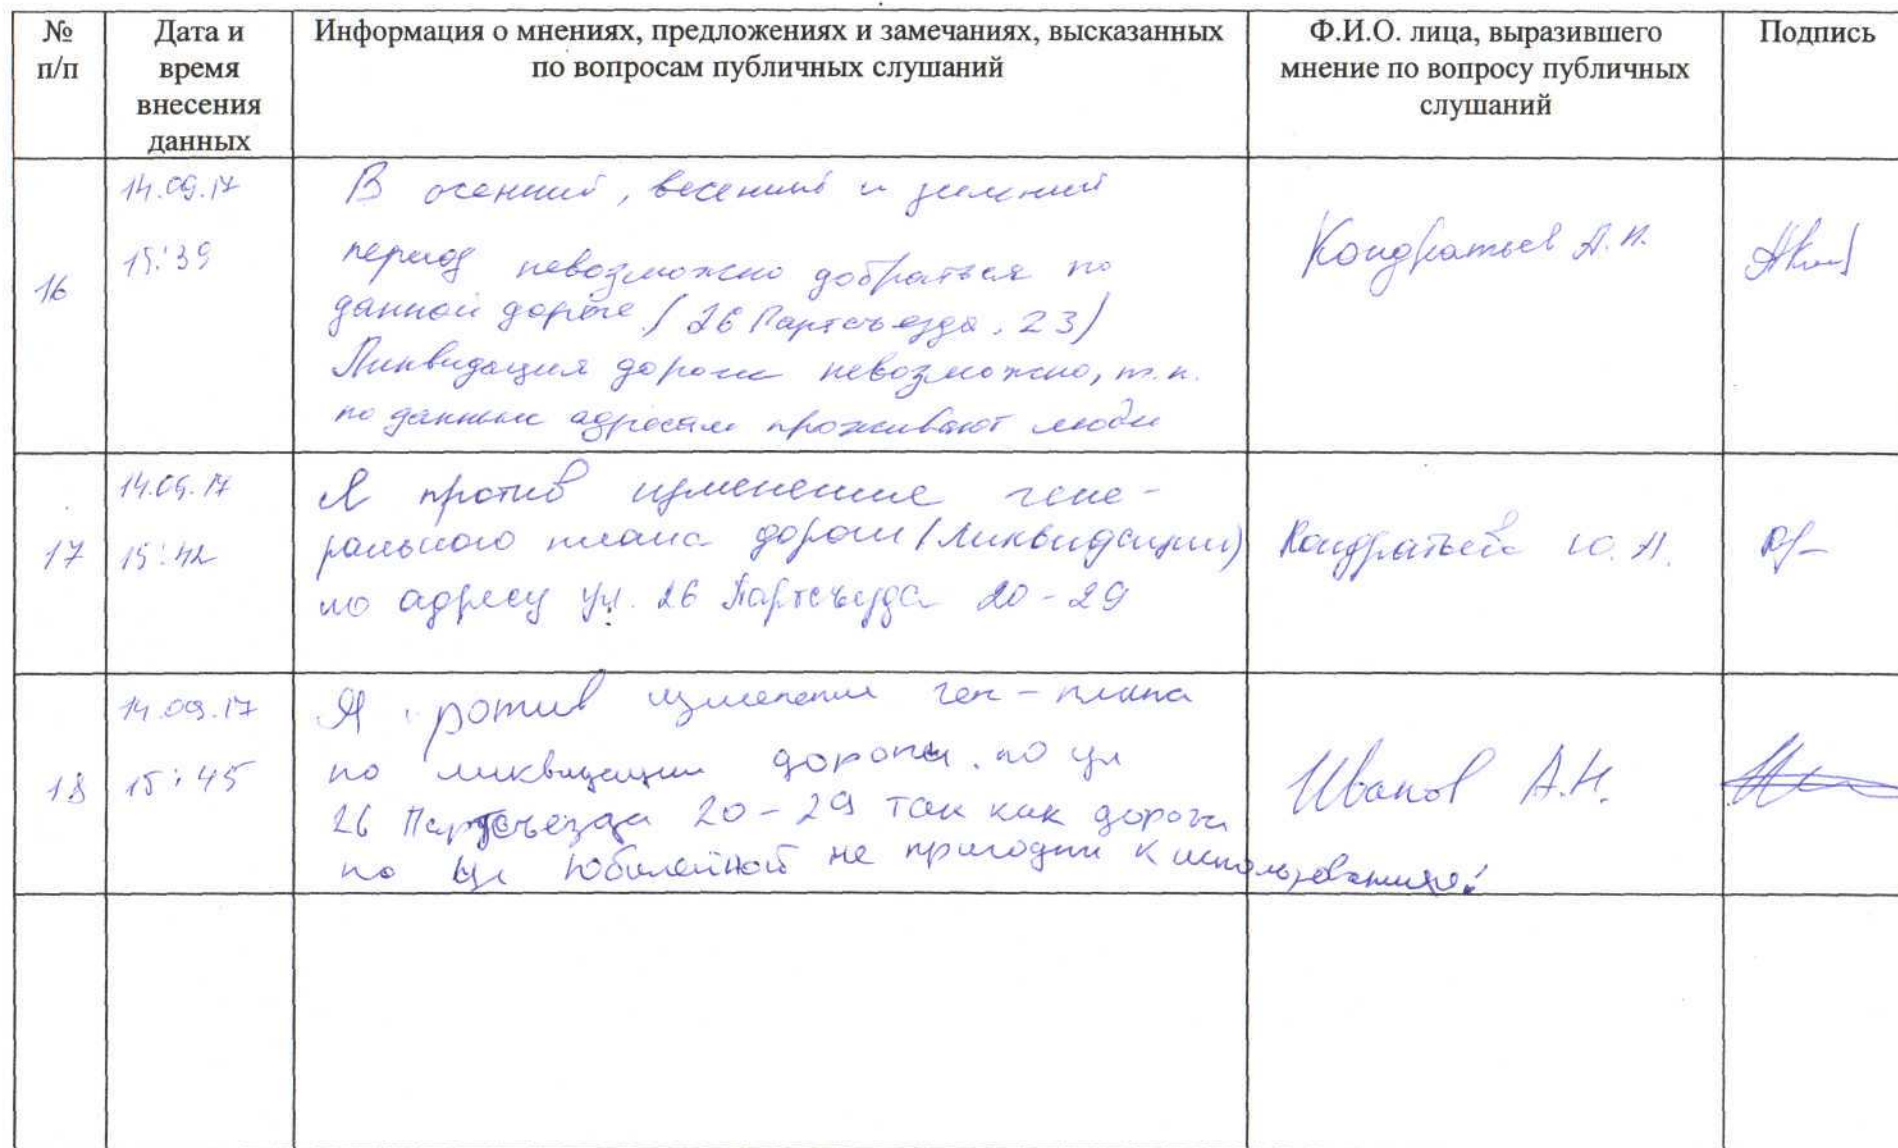 №
п/п
Дата и
время
внесения
данных
Информация о мнениях, предложениях и замечаниях, высказанных
по вопросам публичных слушаний
Ф.И.О. лица, выразившего
мнение по вопросу публичных
слушаний
Подпись
16
14.09.17
15:39
В осенний, весенний и зимний
период невозможно добраться по
данной дороге (26 Партсъезда, 23)
Ликвидация дороги невозможно, т.к.
по данным адресам проживают люди
Кондратьев А.П.
17
14.09.17
15:42
Я против изменение гене-
рального плана дороги (ликвидации)
по адресу ул. 26 Партсъезда 20-29
Кондратьева Ю.А.
18
14.09.17
15:45
Я против изменения ген-плана
по ликвидации дороги по ул
26 Партсъезда 20-29 так как дорога
по ул Юбилейной не пригодна к использованию!
Иванов А.Н.